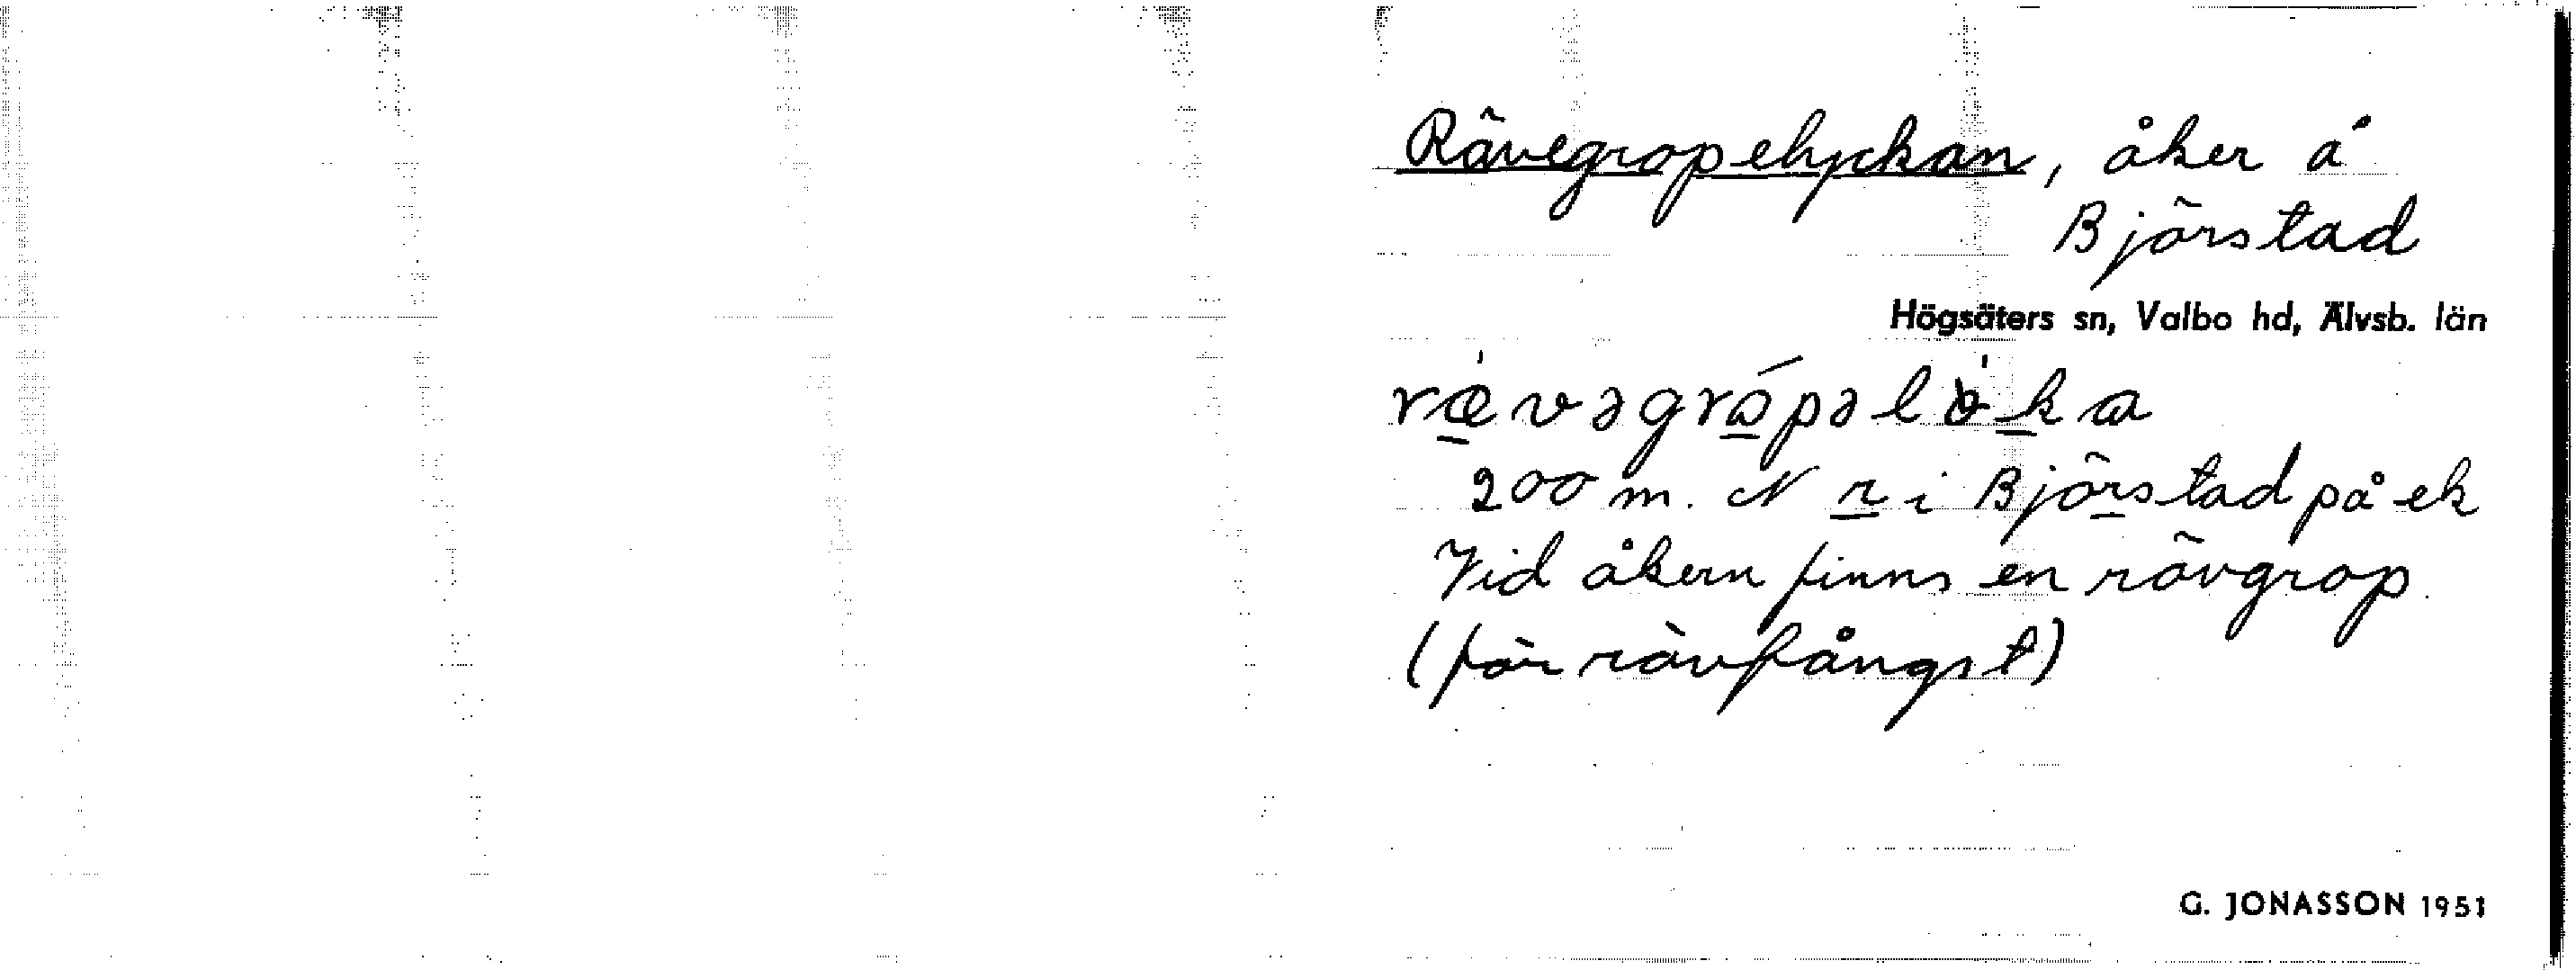 Rävegropelyckan, åker å
Björstad
Högsäters sn, Valbo hd, Älvsb. län
ræ̀vəgrɑ́pəlòka
200 m. N r i Björstad på ek
Vid åkern finns en rävgrop
(för rävfångst)
G. JONASSON 1951